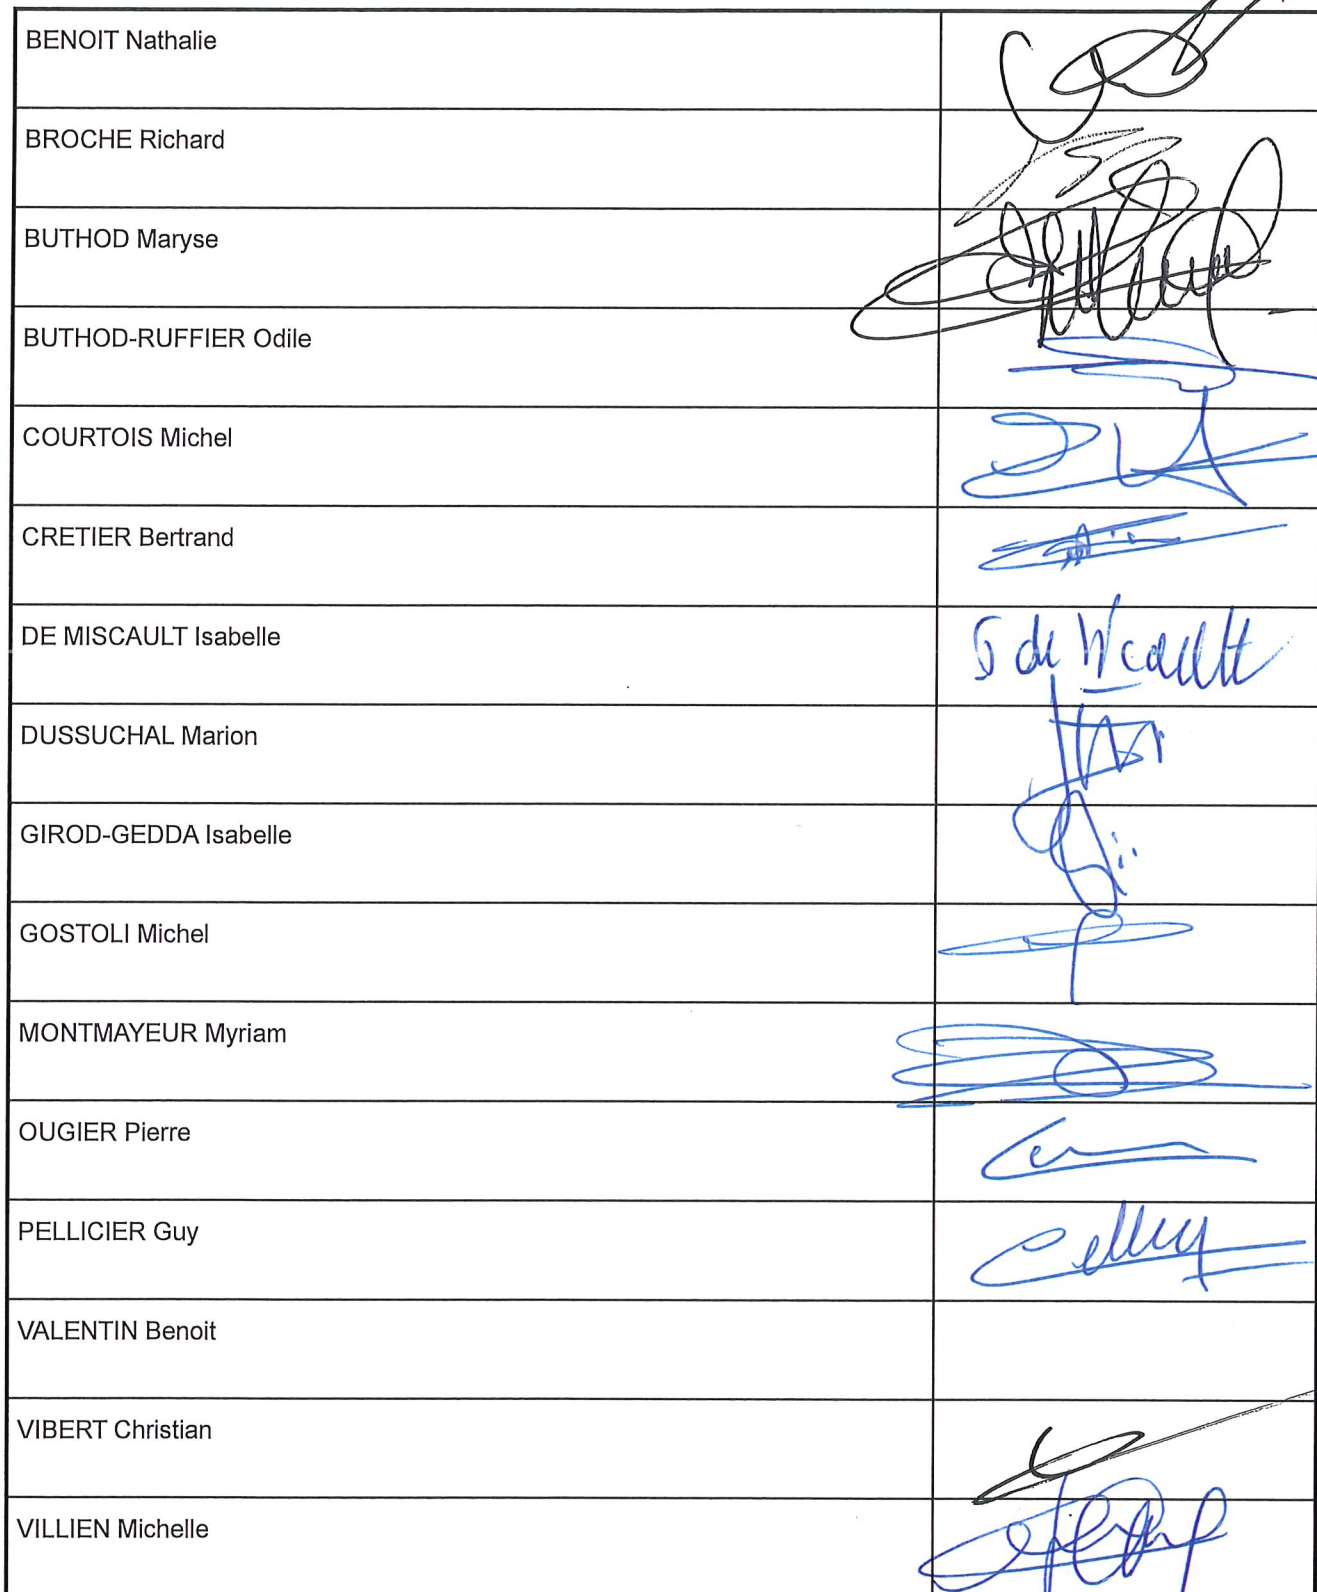 BENOIT Nathalie
BROCHE Richard
BUTHOD Maryse
BUTHOD-RUFFIER Odile
COURTOIS Michel
CRETIER Bertrand
DE MISCAULT Isabelle
DUSSUCHAL Marion
GIROD-GEDDA Isabelle
GOSTOLI Michel
MONTMAYEUR Myriam
OUGIER Pierre
PELLICIER Guy
VALENTIN Benoit
VIBERT Christian
VILLIEN Michelle